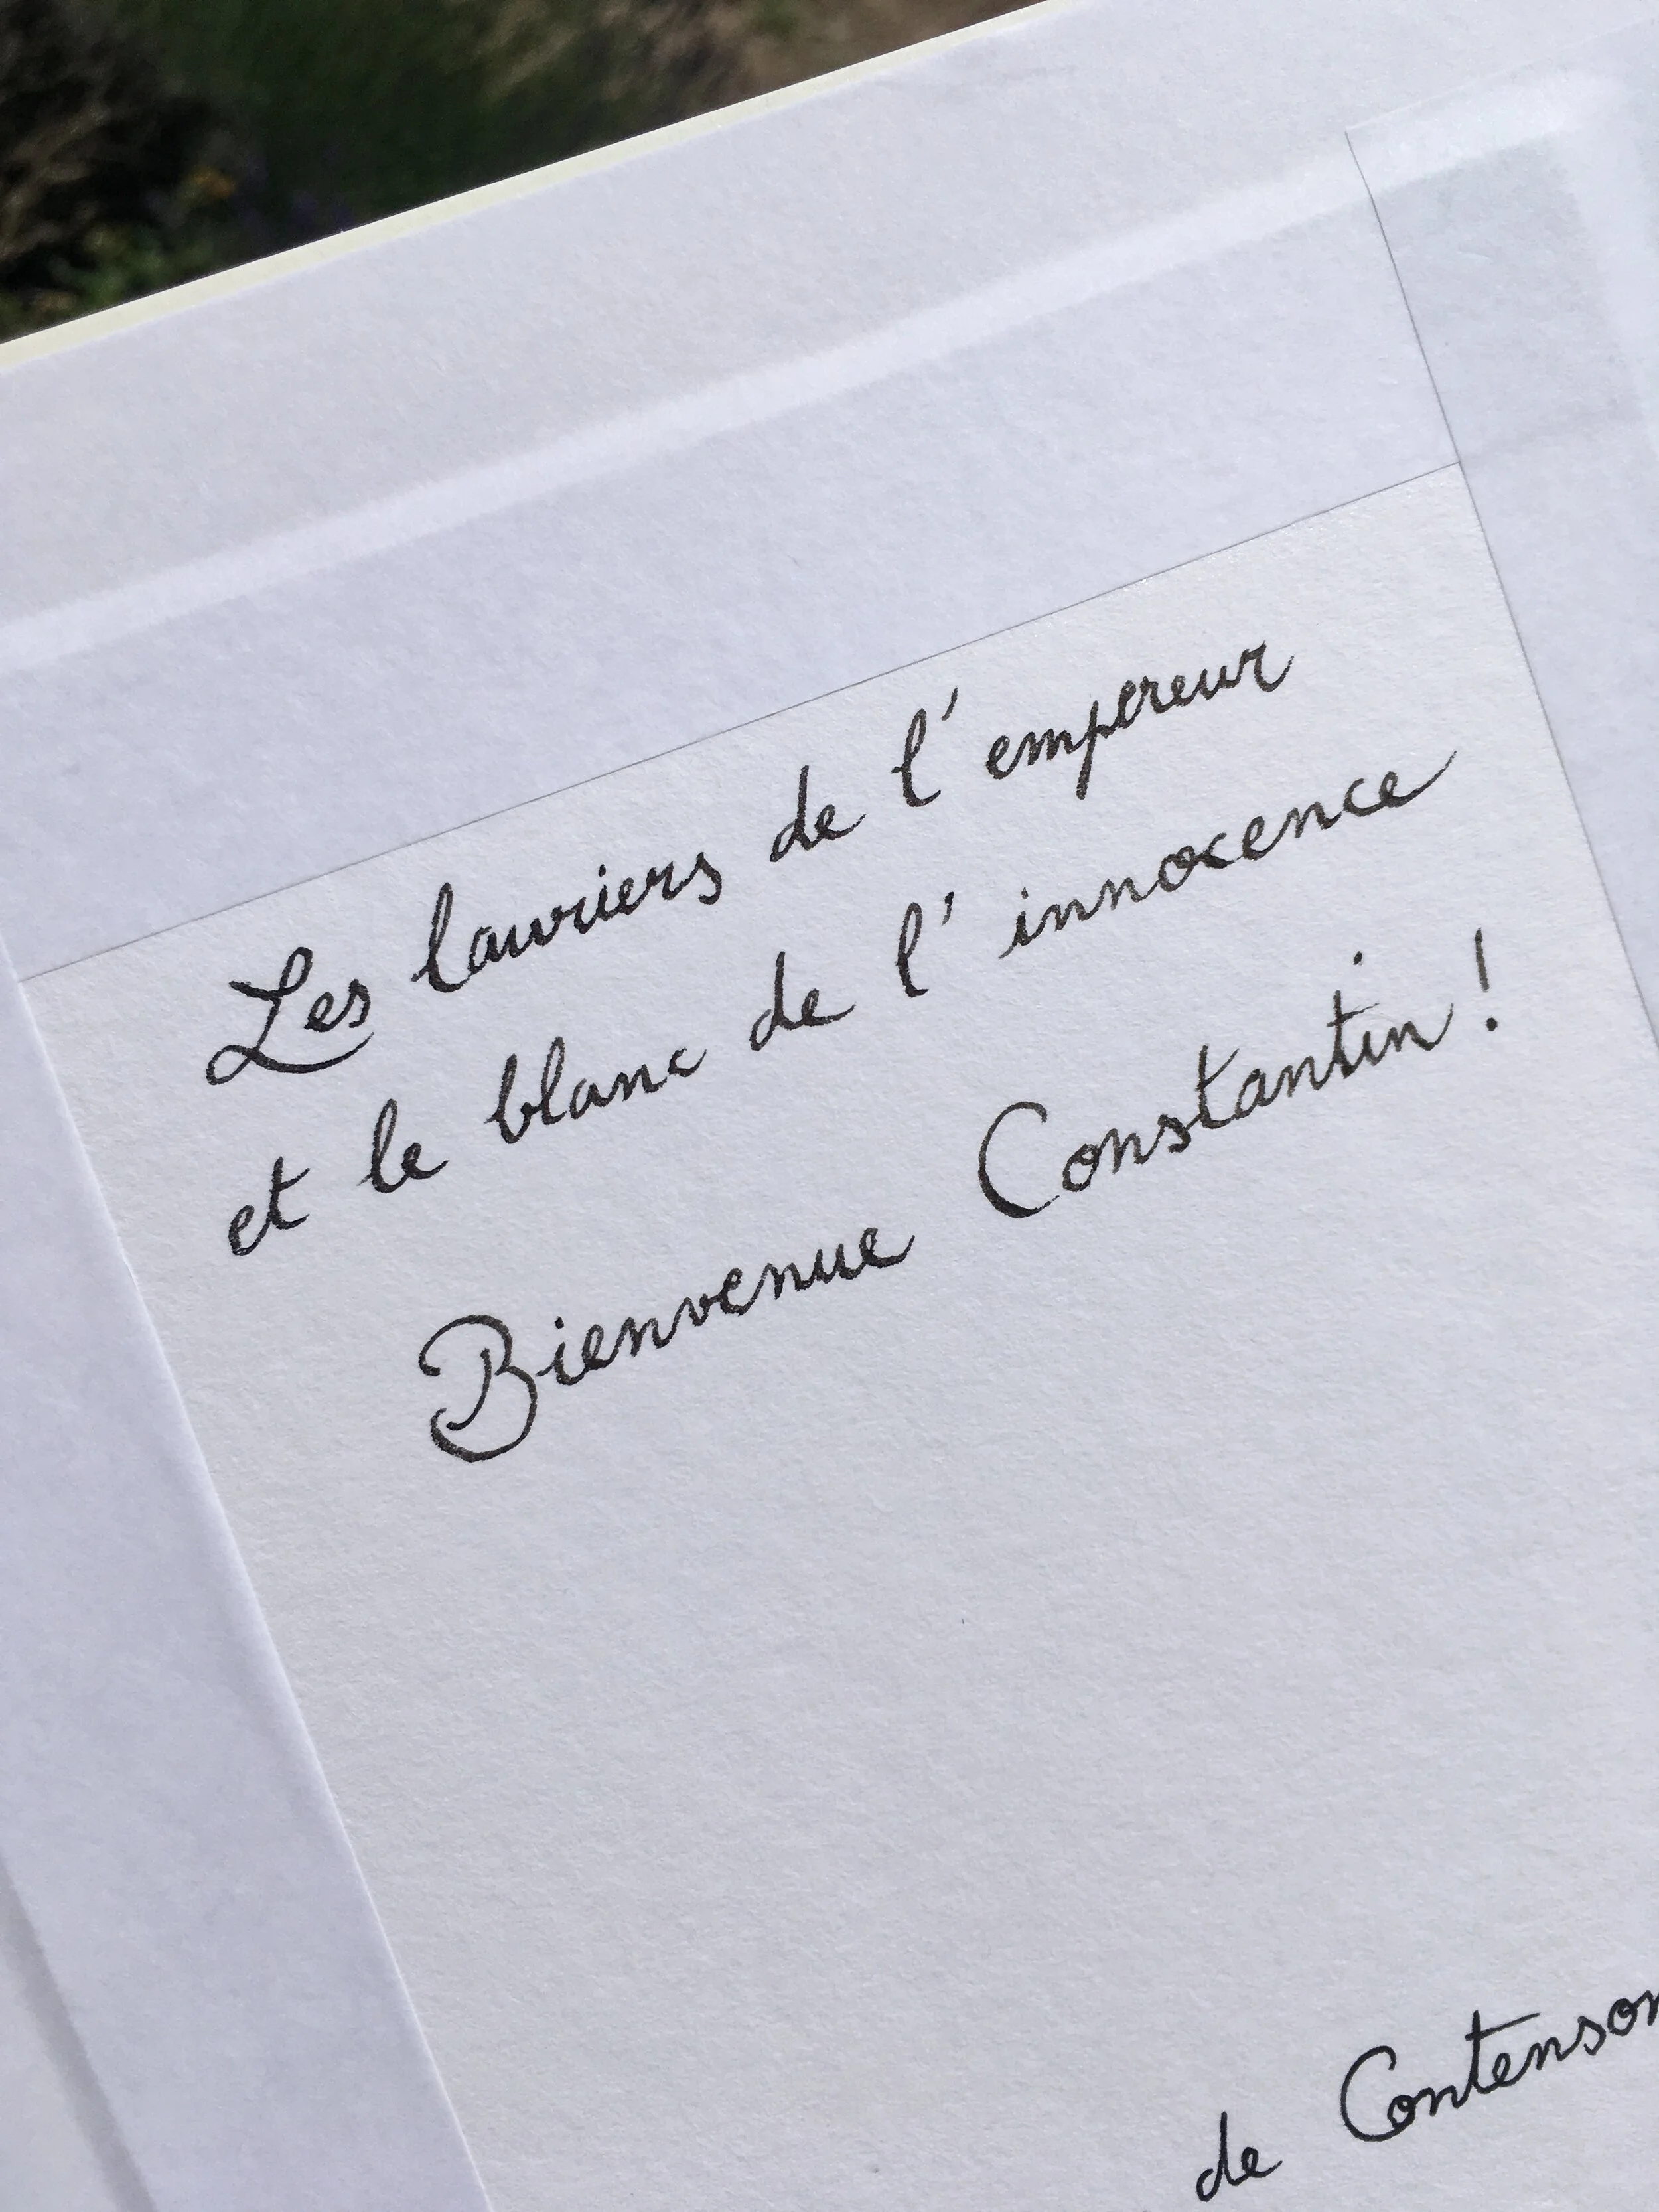 Les lauriers de l'empereur
et le blanc de l'innocence
Bienvenue Constantin !
de Contenson